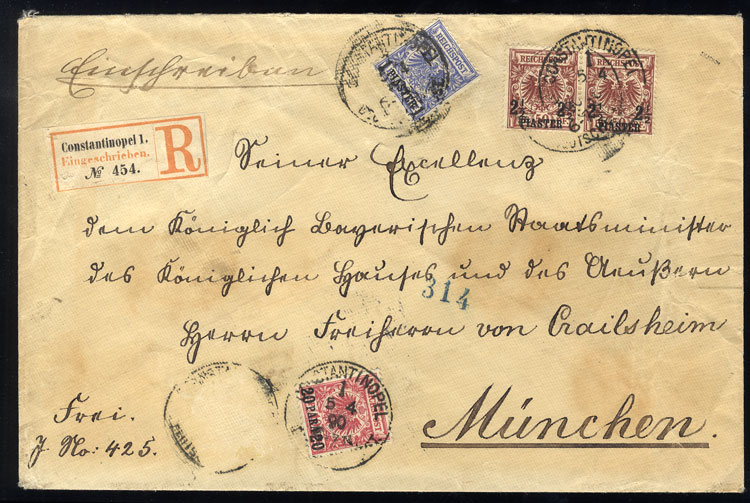 Einschreiben
CONSTANTINOPEL
REICHSPOST
1 PIASTER 1
CONSTANTINOPEL 1
5 4
REICHSPOST REICHSPOST
2½ 2½ 2½ 2½
PIASTER PIASTER
Constantinopel 1.
Eingeschrieben.
№ 454.
R
Seiner Excellenz
dem Königlich Bayerischen Staatsminister
des Königlichen Hauses und des Aeußern
314
Herrn Freiherrn von Crailsheim
München.
CONSTANTINOPEL
1
5 4
90
REICHSPOST
20 PARA 20
Frei.
J No: 425.